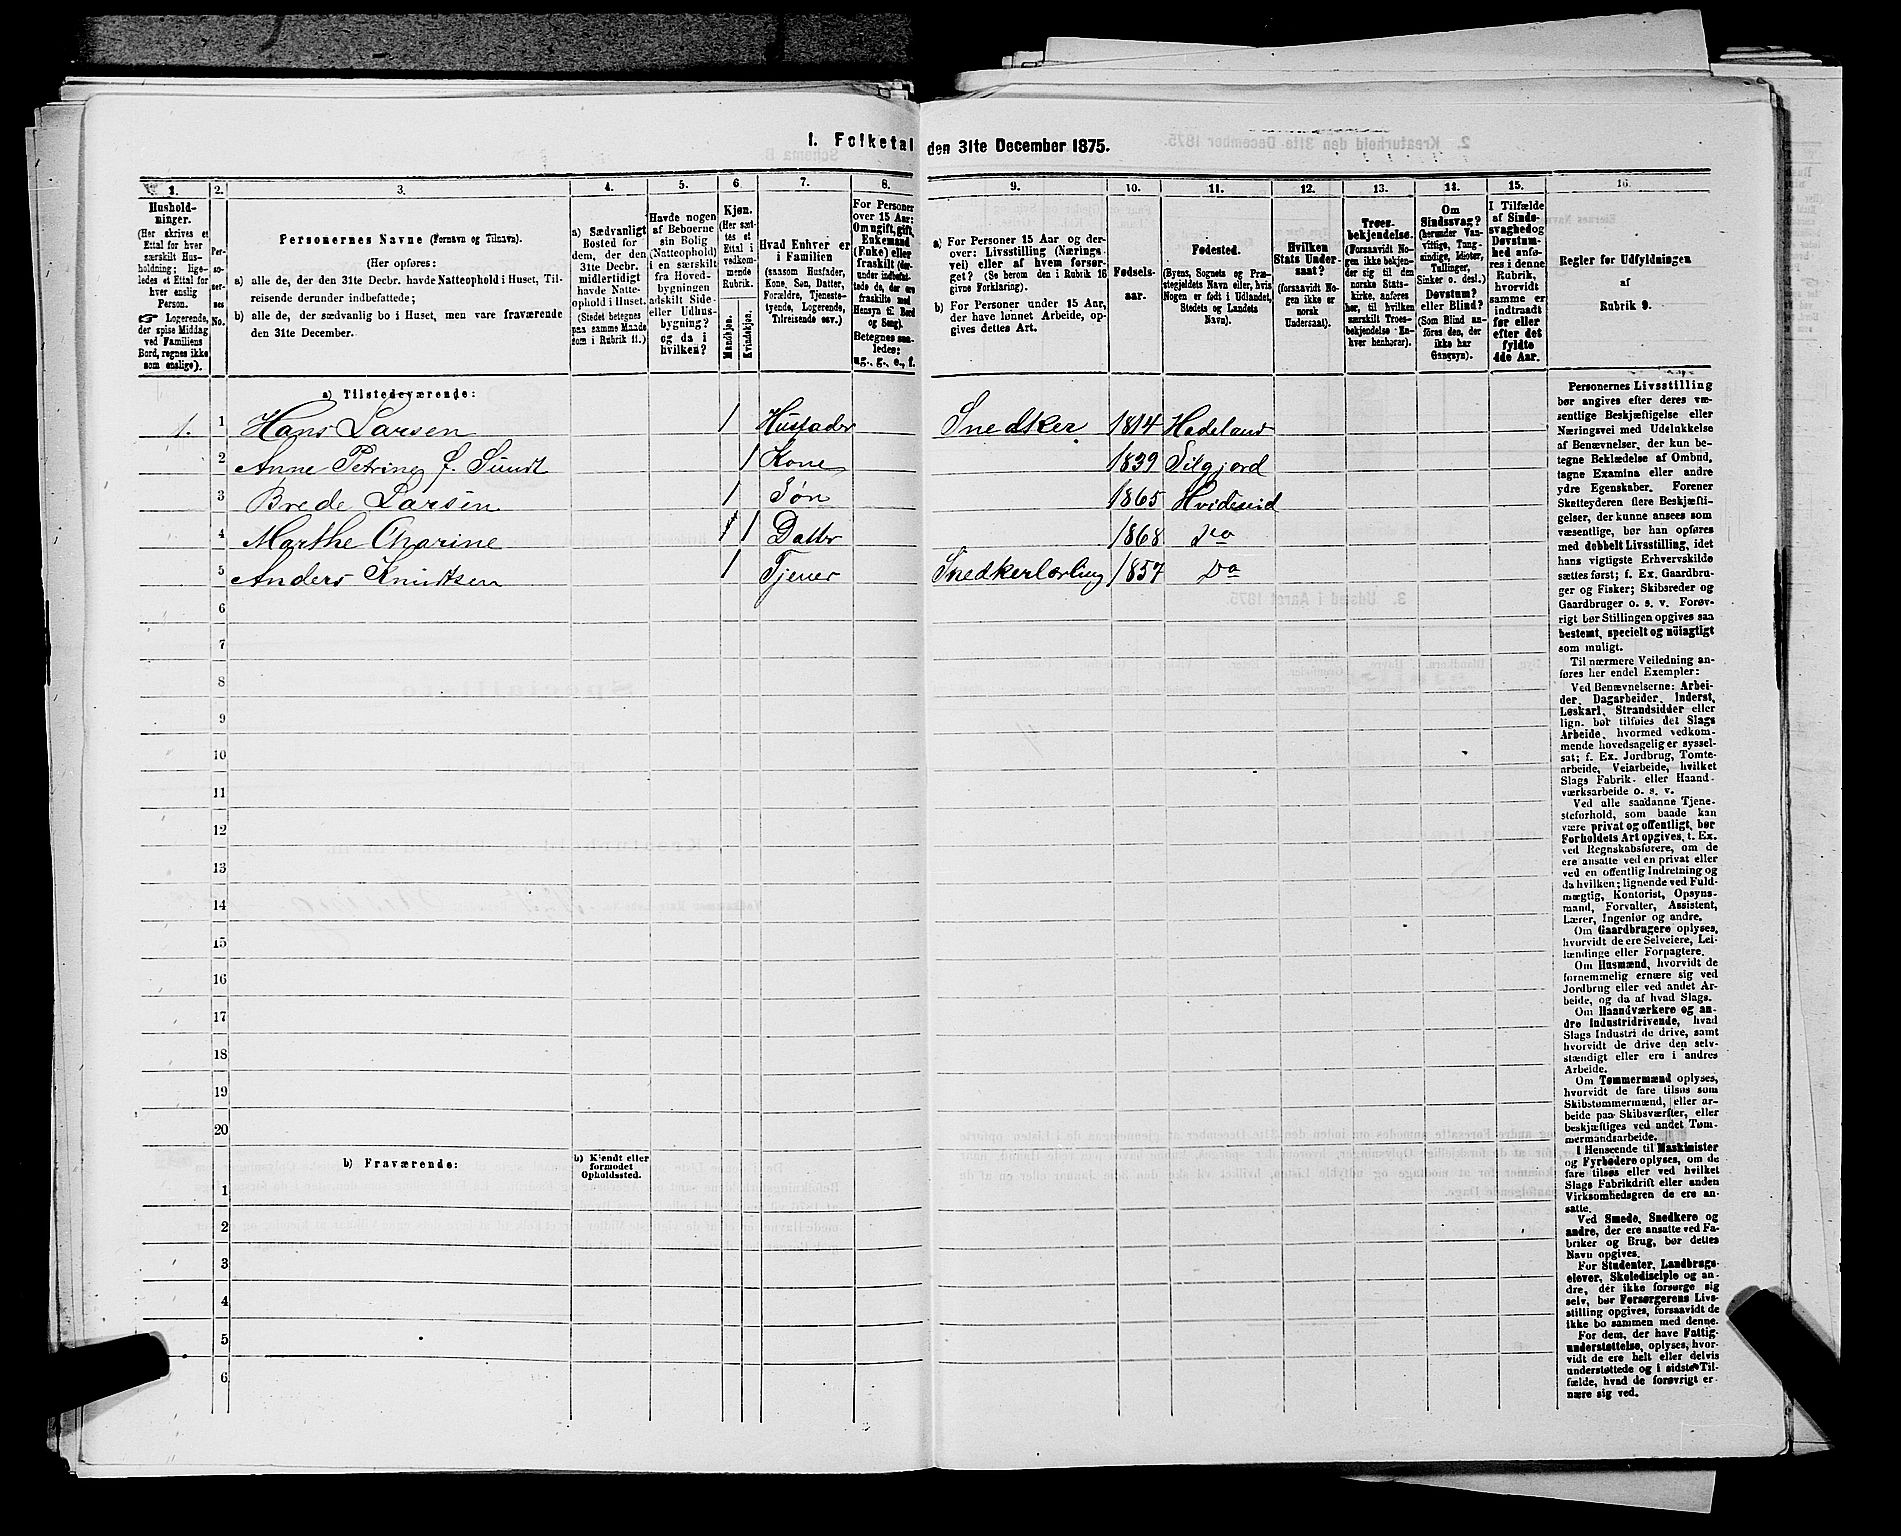 1. Folketal den 31te December 1875.
1. 2. 3. 4. 5. 6. 7. 8. 9. 10. 11. 12. 13. 14. 15. 16.
Hushold-
ninger.
(Her skrives et
Ettal for hver
særskilt Hus-
holdning; lige-
ledes et Ettal for
hver enslig
Person.
Logerende,
der spise Middag
ved Familiens
Bord, regnes ikke
som enslige).
Per-
soner-
nes
No.
Personernes Navne (Fornavn og Tilnavn).
(Her opføres:
a) alle de, der den 31te Decbr. havde Natteophold i Huset, Til-
reisende derunder indbefattede;
b) alle de, der sædvanlig bo i Huset, men vare fraværende
den 31te December.
a) Sædvanligt
Bosted for
dem, der den
31te Decbr.
midlertidigt
havde Natte-
ophold i Huset.
(Stedet betegnes
paa samme Maade
som i Rubrik 11.)
Havde nogen
af Beboerne
sin Bolig
(Natteophold)
i en særskilt
fra Hoved-
bygningen
adskilt Side-
eller Udhus-
bygning?
og da i
hvilken?
Kjøn.
(Her sæt-
tes et
Ettal i
vedkom-
mende
Rubrik.
Mandkjøn.
Kvindekjøn.
Hvad Enhver er
i Familien
(saasom Husfader,
Kone, Søn, Datter,
Forældre, Tjeneste-
tyende, Logerende,
Tilreisende osv.)
For Personer
over 15 Aar:
Om ugift, gift,
Enkemand
(Enke) eller
fraskilt (der-
under indbefat-
tede de, der ere
fraskilte med
Hensyn til Bord
og Seng).
Betegnes saa-
ledes:
ug., g., e., f.
a) For Personer 15 Aar og der-
over: Livsstilling (Nærings-
vei) eller af hvem forsør-
get? (Se herom den i Rubrik 16
givne Forklaring).
b) For Personer under 15 Aar,
der have lønnet Arbeide, op-
gives dettes Art.
Fødsels-
aar.
Fødested.
(Byens, Sognets og Præ-
stegjeldets Navn eller, hvis
Nogen er født i Udlandet,
Stedets og Landets
Navn).
Hvilken
Stats Under-
saat?
(forsaavidt No-
gen ikke er
norsk
Undersaat).
Troes-
bekjendelse.
(Forsaavidt No-
gen ikke bekjen-
der sig til den
norske Stats-
kirke, anføres
her, til hvilken
særskilt Troes-
bekjendelse En-
hver henhører).
Om
Sindssvag?
(herunder Van-
vittige, Tung-
sindige, Idioter,
Tullinger,
Sinker o. desl.)
Døvstum?
eller Blind?
(Som Blind an-
føres den, der
ikke har
Gangsyn).
I Tilfælde
af Sinds-
svaghed og
Døvstum-
hed anfø-
res i denne
Rubrik,
hvorvidt
samme er
indtraadt
før eller
efter det
fyldte
4de Aar.
Regler for Udfyldningen
af
Rubrik 9.
a) Tilstedeværende:
1. 1 Hans Larsen 1 Husfader Snedker 1814 Hadeland
2 Anne Petrine f. Sundt 1 Kone 1839 Silgjord
3 Brede Larsen 1 Søn 1865 Hvideseid
4 Marthe Charine 1 Datter 1868 Do
5 Anders Knudtsen 1 Tjener Snedkerlærling 1857 Do
6
7
8
9
10
11
12
13
14
15
16
17
18
19
20
b) Fraværende:
b) Kjendt eller
formodet
Opholdssted.
1
2
3
4
5
6
Personernes Livsstilling
bør angives efter deres væ-
sentlige Beskjæftigelse eller
Næringsvei med Udelukkelse
af Benævnelser, der kun be-
tegne Beklædelse af Ombud,
tagne Examina eller andre
ydre Egenskaber. Forener
Skatteyderen flere Beskjæfti-
gelser, der kunne ansees som
væsentlige, bør han opføres
med dobbelt Livsstilling, idet
hans vigtigste Erhvervskilde
sættes først; f. Ex. Gaardbru-
ger og Fisker; Skibsreder og
Gaardbruger o. s. v. Forøv-
rigt bør Stillingen opgives saa
bestemt, specielt og nöiagtigt
som muligt.
Til nærmere Veiledning an-
føres her endel Exempler:
Ved Benævnelserne: Arbei-
der, Dagarbeider, Inderst,
Løskarl, Strandsidder eller
lign. bør tilføies det Slags
Arbeide, hvormed vedkom-
mende hovedsagelig er syssel-
sat; f. Ex. Jordbrug, Tomte-
arbeide, Veiarbeide, hvilket
Slags Fabrik- eller Haand-
værksarbeide o. s. v.
Ved alle saadanne Tjene-
steforhold, som baade kan
være privat og offentligt, bør
Forholdets Art opgives, t. Ex.
ved Regnskabsførere, om de
ere ansatte ved en privat eller
ved en offentlig Indretning og
da hvilken; lignende ved Fuld-
mægtig, Kontorist, Opsyns-
mand, Forvalter, Assistent,
Lærer, Ingeniør og andre.
Om Gaardbrugere oplyses,
hvorvidt de ere Selveiere, Lei-
lændinge eller Forpagtere.
Om Husmænd, hvorvidt de
fornemmelig ernære sig ved
Jordbrug eller ved andet Ar-
beide, og da af hvad Slags.
Om Haandværkere og an-
dre Industridrivende, hvad
Slags Industri de drive, samt
hvorvidt de drive den selv-
stændigt eller ere i andres
Arbeide.
Om Tømmermænd oplyses,
hvorvidt de fare tilsøs som
Skibstømmermænd, eller ar-
beide paa Skibsværfter, eller
beskjæftiges ved andet Tøm-
mermandsarbeide.
I Henseende til Maskinister
og Fyrbødere oplyses, om de
fare tilsøs eller ved hvilket
Slags Fabrikdrift eller anden
Virksomhedsgren de ere an-
satte.
Ved Smede, Snedkere og
andre, der ere ansatte ved Fa-
briker og Brug, bør dettes
Navn opgives.
For Studenter, Landbrugs-
elever, Skoledisciple og an-
dre, der ikke forsørge sig
selv, bør Forsørgerens Livs-
stilling opgives, forsaavidt de
ikke bo sammen med denne.
For dem, der have Fattig-
understøttelse, oplyses, hvor-
vidt de ere helt eller delvis
understøttede og i sidste Til-
fælde, hvad de forøvrigt er-
nære sig ved.